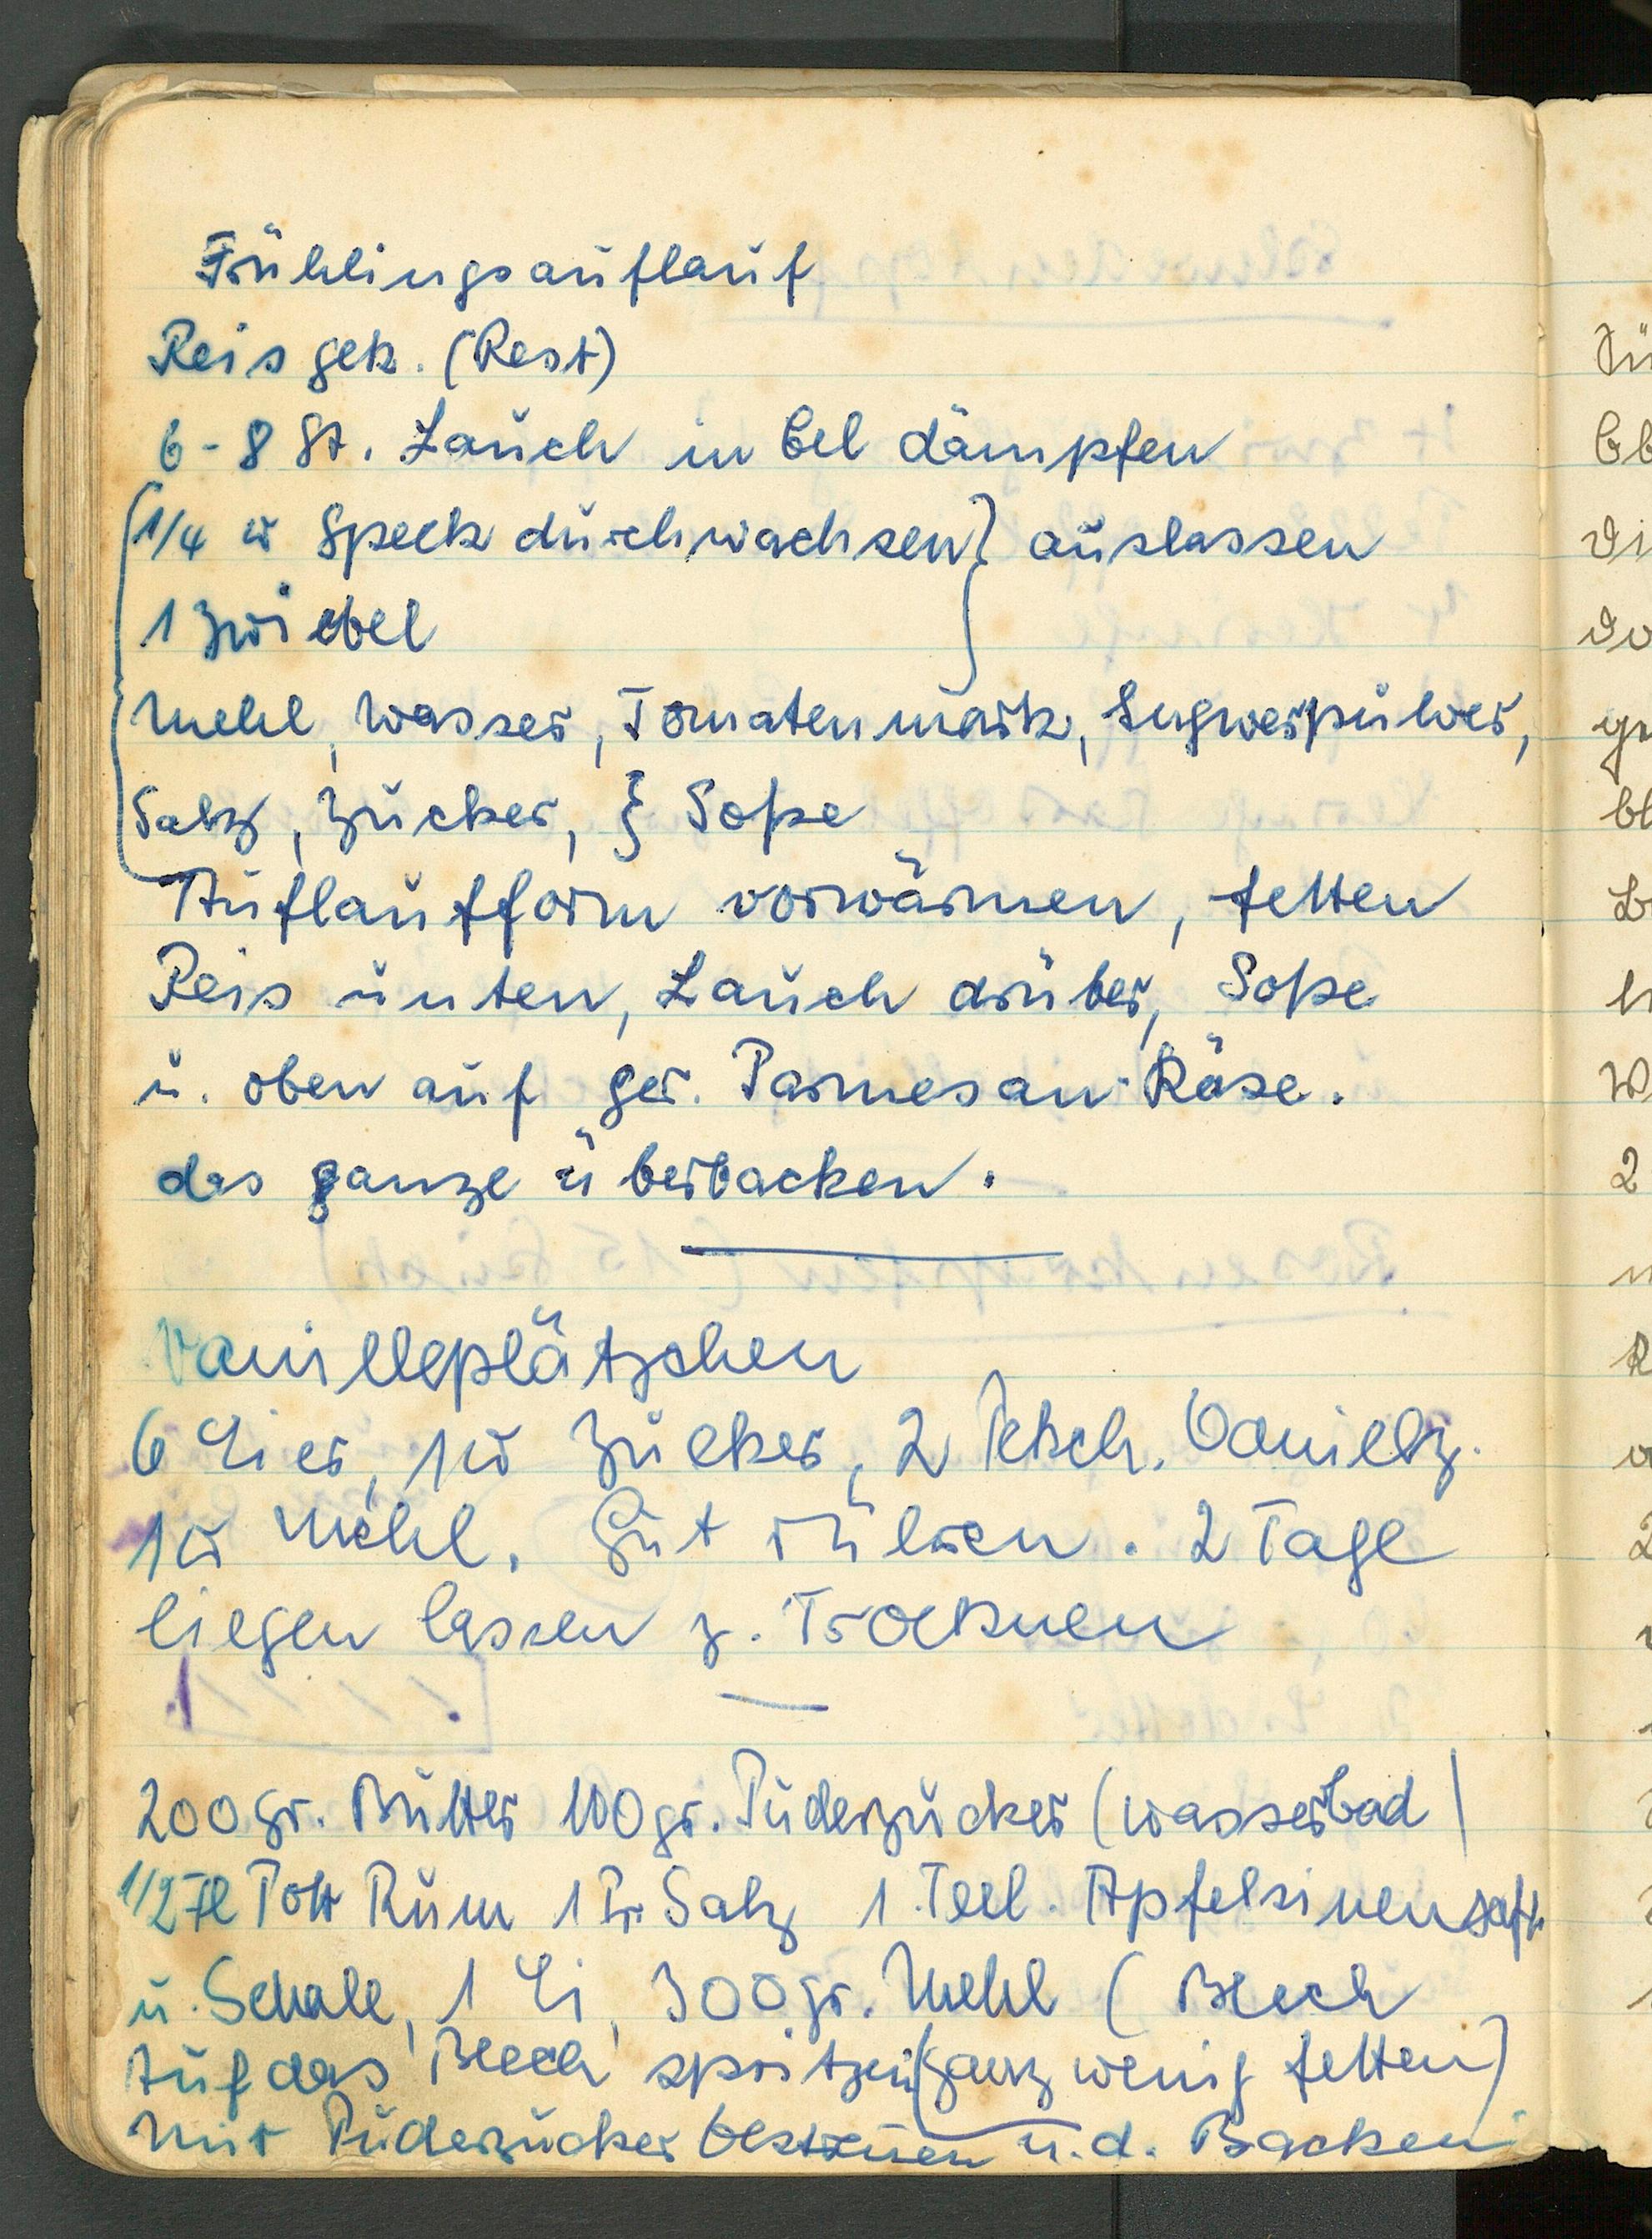 Frühlingsauflauf
Reis gek. (Rest)
6-8 St. Lauch in Oel dämpfen
1/4 ℔ Speck durchwachsen } auslassen
1 Zwiebel
Mehl, Wasser, Tomatenmark, Ingwerpulver,
Salz, Zucker, } Soße
Auflaufform vorwärmen, fetten
Reis unten, Lauch drüber, Soße
u. oben auf ger. Parmesan-Käse.
das ganze überbacken.
Vanilleplätzchen
6 Eier, 1 ℔ Zucker, 2 Pckch. Vanillz.
1 ℔ Mehl. Gut rühren. 2 Tage
liegen lassen z. Trocknen
200 gr. Butter 100 gr. Puderzucker (Wasserbad)
1/2 Fl Pott Rum 1 Pr. Salz 1 Teel. Apfelsinensaft
u. Schale, 1 Ei, 300 gr. Mehl ( Blech
Auf das Blech spritzen (ganz wenig fetten)
Mit Puderzucker bestreuen n. d. Backen
Fü
Di
2